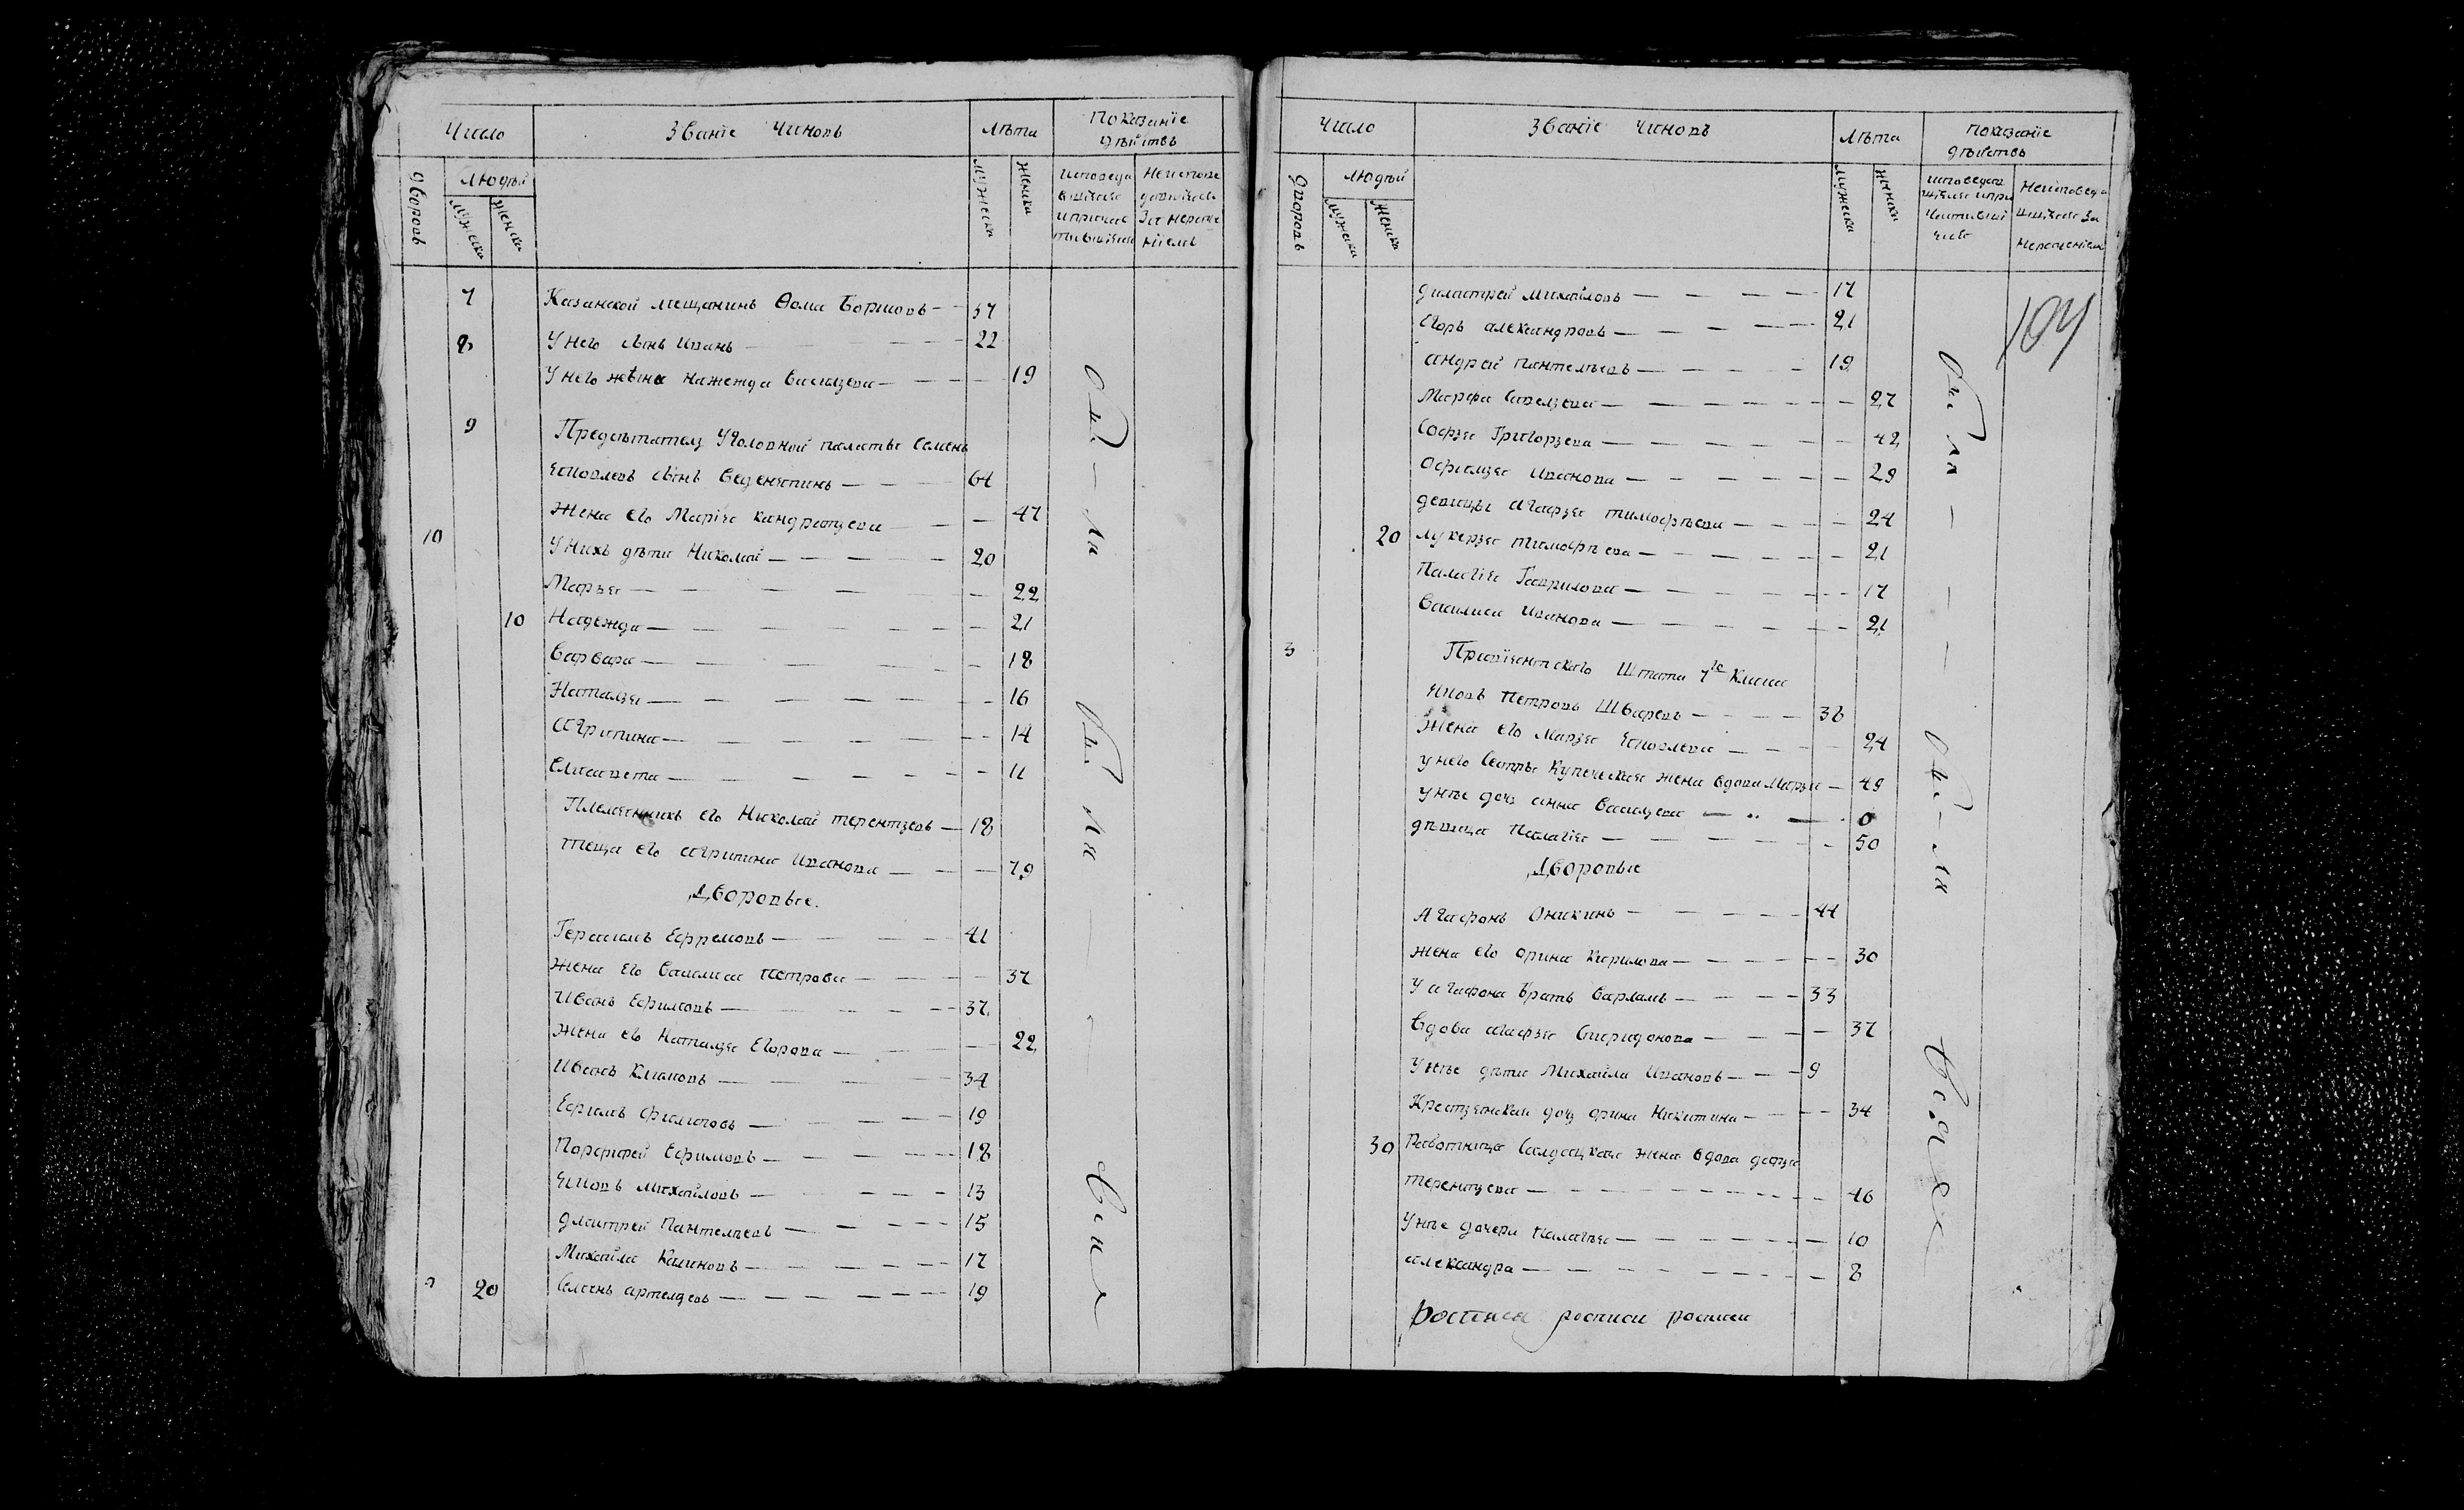 Число
Званіе Чиновъ
Лѣта
Показаніе
дѣйствъ
дворовъ
людей
мужеска
женска
мужеска
женска
исповеда
вшихся
и причас
тившихся
Неиспове
давшихся
За нераче
ніемъ
7 Казанской мещанинъ Ѳома Борисовъ — 57
8 У него сынъ Иванъ — 22
У него жена Надежда Васильева — 19
9 Председатель Уголовной палаты Семенъ
Яковлевъ сынъ Веденяпинъ — 64
Жена его Марія Кандратьева — 47
10 У Нихъ дѣти Николай — 20
Марья — 22
10 Надежда — 21
Варвара — 18
Наталья — 16
Агрипина — 14
Елисавета — 11
Племянникъ его Николай терентьевъ — 18
теща его агрипина Иванова — 79
Дворовые.
Герасимъ Ефремовъ — 41
Жена его Василиса петрова — 37
Иванъ Ефимовъ — 37
Жена ево Наталья Егорова — 22
Иванъ Климовъ — 34
Ефимъ Филиповъ — 19
Порфирей Ефимовъ — 18
Яковъ михайловъ — 13
дмитрей пантелѣевъ — 15
Михайла — 17
20 Семенъ артемьевъ — 19
были
были
вси
Число
Званіе Чиновъ
Лѣта
показаніе
дѣйствъ
дворовъ
людей
мужеска
женска
мужеска
женска
исповедав
шихся и при
частивши
хся
Неисповеда
вшихся За
нераченіемъ
104
димитрей михайловъ — 17
Егоръ александровъ — 21
андрей пантелѣевъ — 19
Марфа Савельева — 27
Софья Григорьева — 42
Офимья Иванова — 29
девицы агафья тимофѣева — 24
20 лукерья тимофѣева — 21
Палагія Гаврилова — 17
Василиса Иванова — 21
3 Правіянтскаго Штата 7го Класа
Яковъ петровъ Шваревъ — 38
Жена его Марья Яковлева — 24
у него Сестра Купеческая жена вдова Марья — 49
у нѣе дочь анна Васильева — 0
дѣвица Палагія — 50
Дворовые
Агафонъ — 44
жена его орина Кирилова — 30
У агафона братъ Варламъ — 33
вдова агафья Спиридонова — 37
У нѣе дѣти Михайла Ивановъ — 9
Крестьянская дочь орина Никитина — 34
30 Работница Салдацкая жена вдова дарья
терентьева — 46
У нѣе дочери палагѣя — 10
александра — 8
были
были
роспися росписи росписи